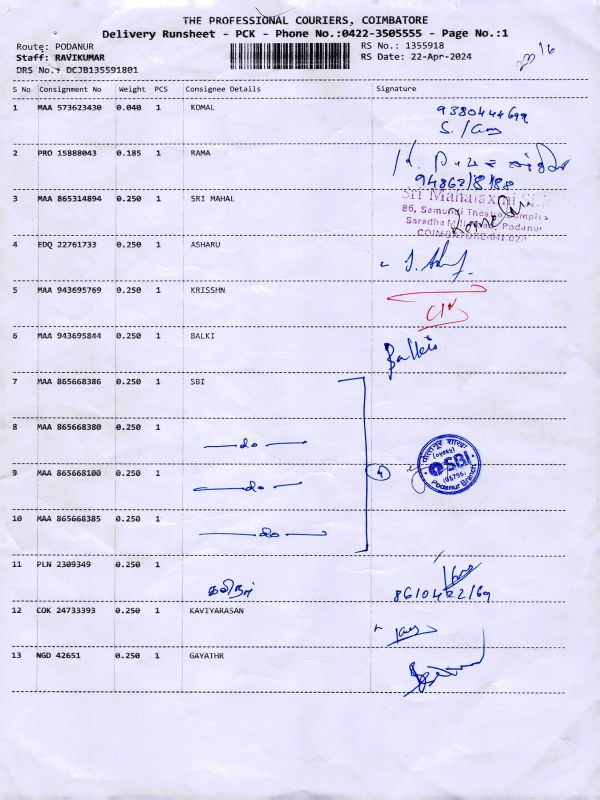 THE PROFESSIONAL COURIERS, COIMBATORE
Delivery Runsheet - PCK - Phone No.:0422-3505555 - Page No.:1
Route: PODANUR
RS No.: 1355918
Staff: RAVIKUMAR
RS Date: 22-Apr-2024
DRS No.: DCJB135591801
S No Consignment No Weight PCS Consignee Details Signature
1 MAA 573623430 0.040 1 KOMAL
2 PRO 15888043 0.185 1 RAMA
3 MAA 865314894 0.250 1 SRI MAHAL
86, Samundi Theatre Complex
Podanur
COIMBATORE-641 023
4 EDQ 22761733 0.250 1 ASHARU
5 MAA 943695769 0.250 1 KRISSHN
6 MAA 943695844 0.250 1 BALKI
Balkis
7 MAA 865668386 0.250 1 SBI
8 MAA 865668380 0.250 1 do
9 MAA 865668100 0.250 1 do
4
SBI
(05795)
Podanur Branch
10 MAA 865668385 0.250 1 do
11 PLN 2309349 0.250 1
12 COK 24733393 0.250 1 KAVIYARASAN
13 NGD 42651 0.250 1 GAYATHR